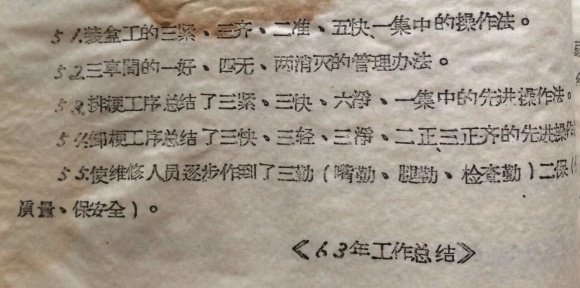 51.装盒工的三紧、三齐、二准、五快、一集中的操作法。
52.三車間的一好、四无、两消灭的管理办法。
53.排梗工序总结了三紧、三快、六淨、一集中的先进操作法。
54.卸梗工序总结了三快、三轻、三淨、二正、三正齐的先进操作
55.使维修人员逐步作到了三勤（嘴勤、腿勤、检查勤）二保（
质量、保安全）。
《63年工作总结》